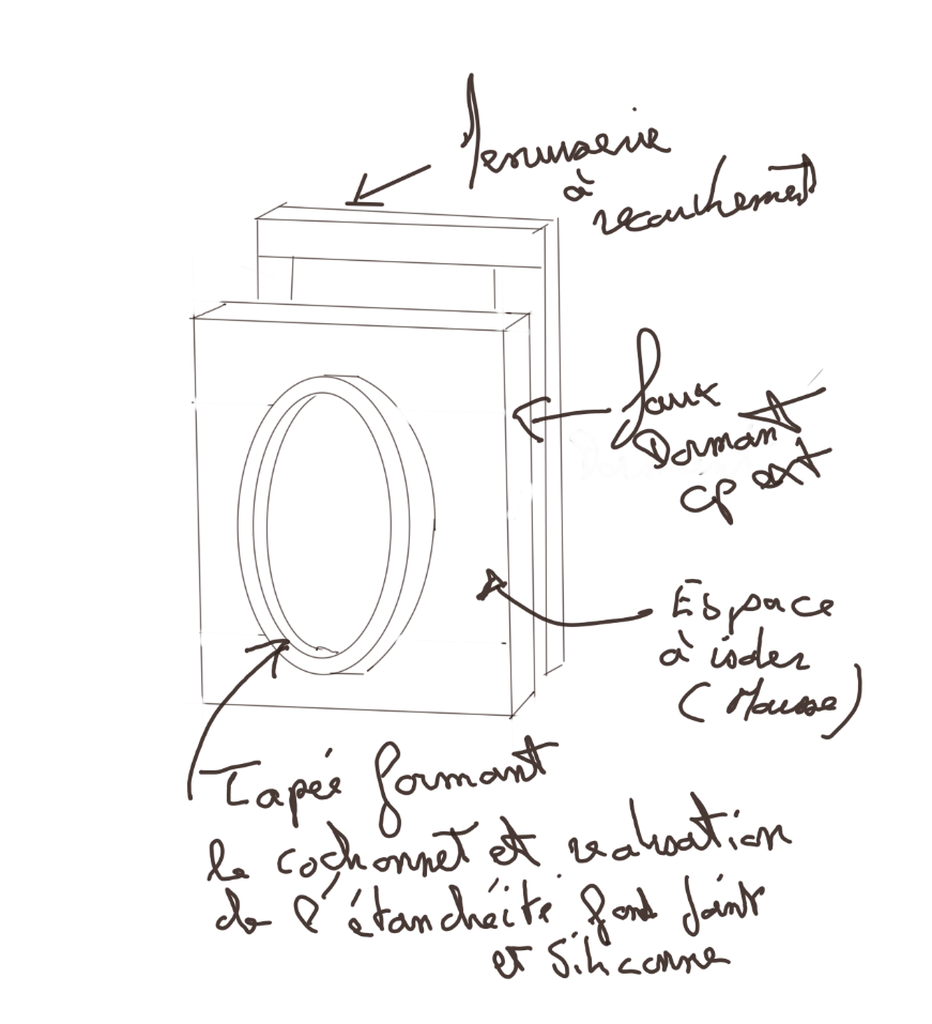 Menuiserie
à
recouvrement
faux
Dormant
cp ext
Espace
à isoler
(Mousse)
Tapée formant
le cochonnet et realisation
de l'étanchéité fond joint
et Silicone